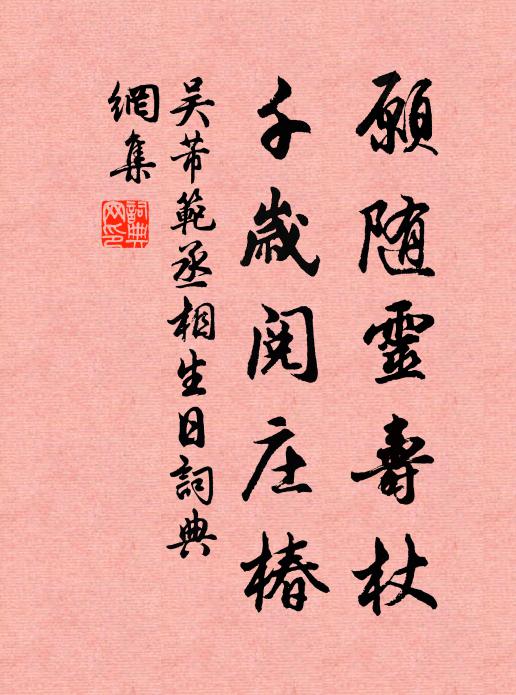 願随靈壽杖
千歲閱庄椿
吴芾範丞相生日詞典
網集
詞典
网印